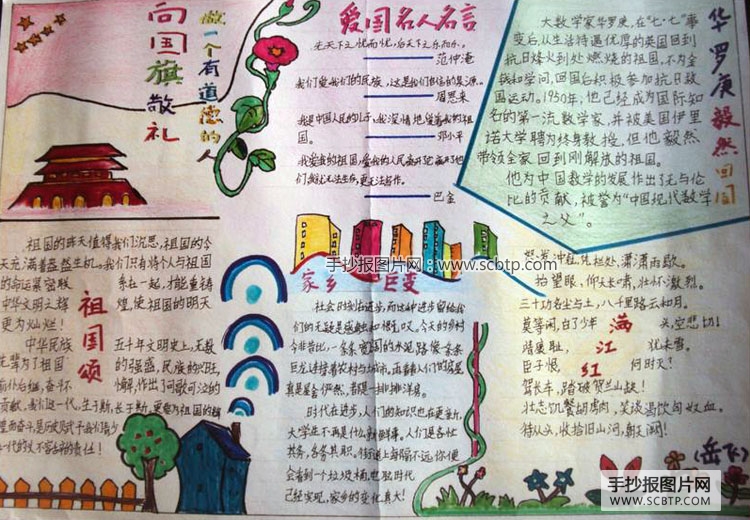 向国旗敬礼
做一个有道德的人
爱国名人名言
先天下之忧而忧，后天下之乐而乐。
——范仲淹
我们爱我们的民族，这是我们自信的泉源。
——周恩来
我是中国人民的儿子，我深情地爱着我的祖
国。
——邓小平
我爱我的祖国，爱我的人民，离开它，离开他
们，我就无法生存，更无法写作。
——巴金
华罗庚毅然回国
大数学家华罗庚，在“七·七”事
变后，从生活待遇优厚的英国回到
抗日烽火到处燃烧的祖国，不为金
钱和学问，回国后积极参加抗日救
国运动。1950年，他已经成为国际知
名的第一流数学家，并被美国伊里
诺大学聘为终身教授，但他毅然
带领全家回到刚解放的祖国。
他为中国数学的发展作出了无与伦
比的贡献，被誉为“中国现代数学
之父”。
祖国颂
祖国的昨天值得我们沉思，祖国的今
天充满着盎然生机。我们只有将个人与祖国
的命运紧密联系在一起，才能重铸
中华文明之辉煌，使祖国的明天
更为灿烂！
中华民族五千年文明史上，无数
先辈为了祖国的强盛，民族的兴旺
前仆后继，奋斗不懈，作出了可歌可泣的
贡献，我们这一代，生于斯，长于斯，更要为祖国的
手抄报图片网：www.scbtp.com
家乡巨变
社会时刻在进步，而这种进步留给我
们的无疑是感触和惊叹。今天的乡村
今非昔比，一条条宽阔的水泥路像一条条
巨龙连接着农村与城市，
真是屋舍俨然，看那一排排洋房。
时代在进步，人们的知识也在更新，
大学生不再是什么新鲜事。人们是各仕
其务，各务其职。街道上每隔不远，你便
会看到一个垃圾桶，
已经实现，家乡的变化真大！
满江红
怒发冲冠，凭栏处，潇潇雨歇。
抬望眼，仰天长啸，壮怀激烈。
三十功名尘与土，八千里路云和月。
莫等闲，白了少年头，空悲切！
靖康耻，犹未雪。
臣子恨，何时灭？
驾长车，踏破贺兰山缺！
壮志饥餐胡虏肉，笑谈渴饮匈奴血。
待从头，收拾旧山河，朝天阙！
（岳飞）
手抄报图片网
WWW.SCBTP.COM